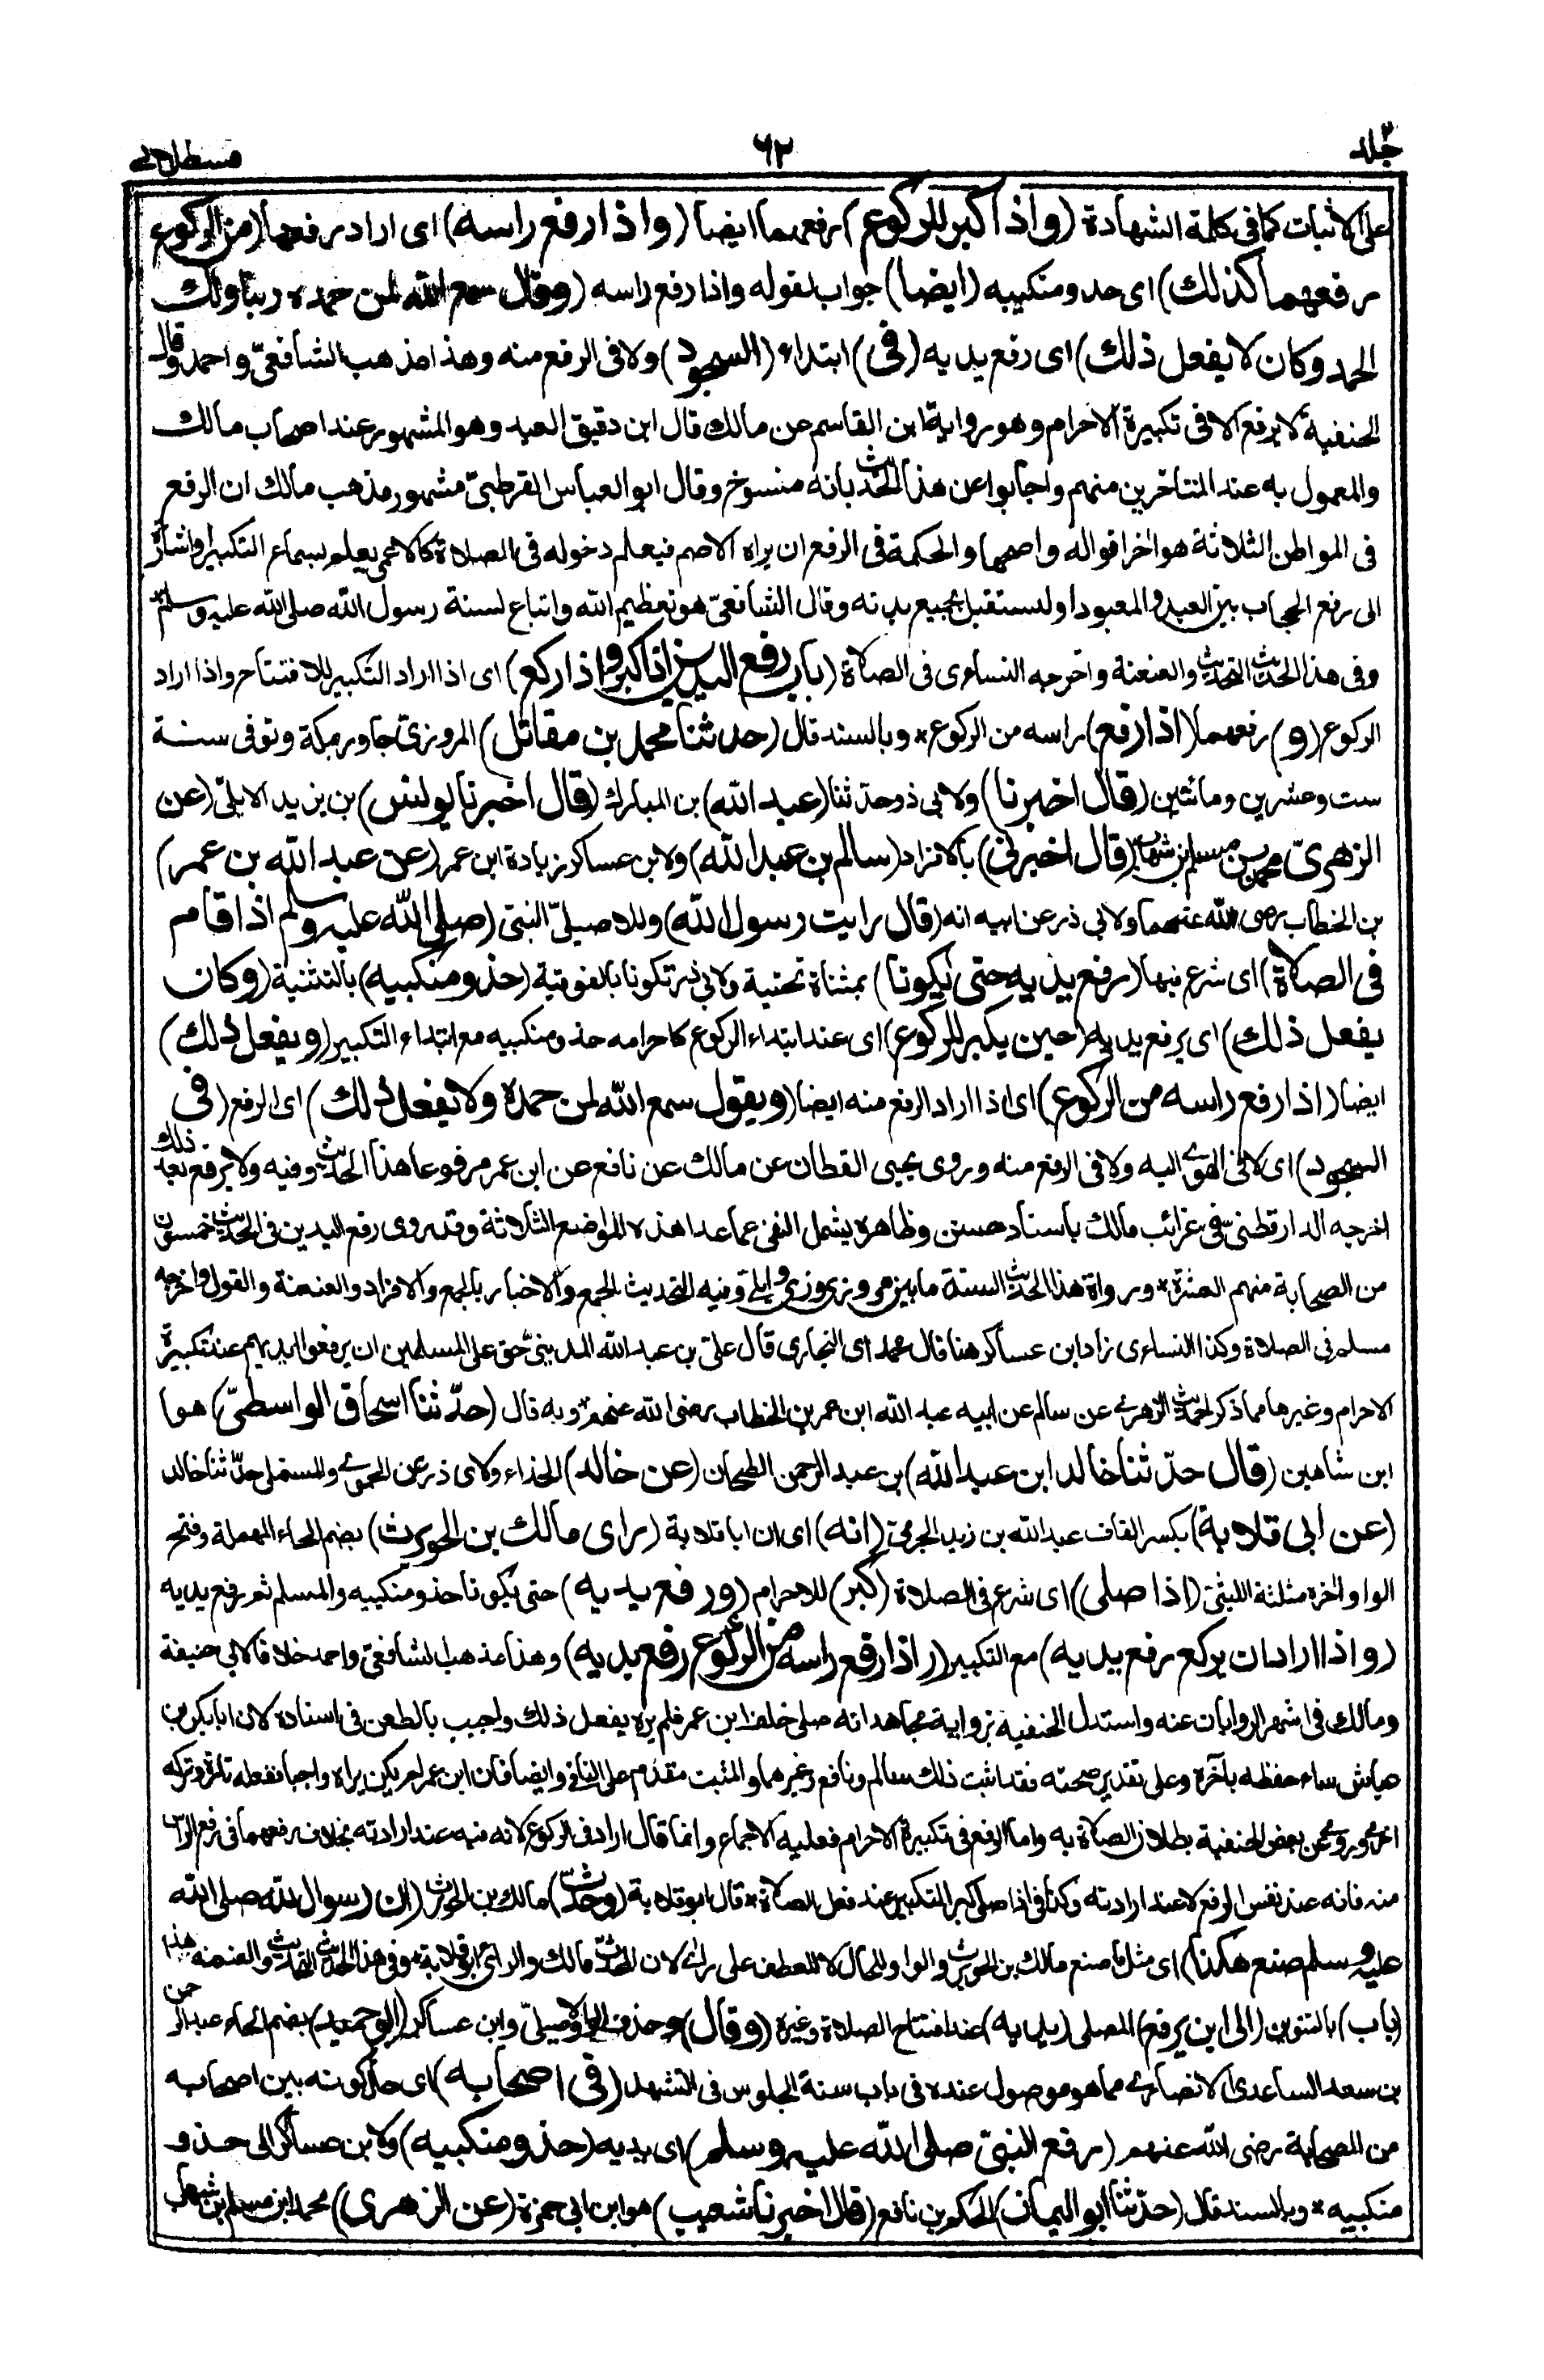 جلد ٢
٦٢
قسطلانى
على الاثبات كما فى كلمة الشهادة (واذا كبر للركوع) رفعهما ايضا (واذا رفع راسه) اى اراد رفعها (من الركوع
رفعهما كذلك) اى حذو منكبيه (ايضا) جواب لقوله واذا رفع راسه (وقال سمع الله لمن حمده ربنا ولك
الحمد وكان لا يفعل ذلك) اى رفع يديه (فى) ابتداء (السجود) ولا فى الرفع منه وهذا مذهب الشافعىّ واحمد وقال
الحنفية لا يرفع الا فى تكبيرة الاحرام وهو رواية ابن القاسم عن مالك قال ابن دقيق العيد وهو المشهور عند اصحاب مالك
والمعمول به عند المتاخرين منهم واجابوا عن هذا الحديث بانه منسوخ وقال ابو العباس القرطبىّ مشهور مذهب مالك ان الرفع
فى المواطن الثلاثة هو اخر اقواله واصحها والحكمة فى الرفع ان يراه الاصم فيعلم دخوله فى الصلاة كالاعمى يعلم بسماع التكبير او اشارة
الى رفع الحجاب بين العبد والمعبود او ليستقبل بجميع بدنه وقال الشافعىّ هو تعظيم الله واتباع لسنة رسول الله صلى الله عليه وسلم*
وفى هذا الحديث التحديث والعنعنة واخرجه النساءى فى الصلاة (باب رفع اليدين اذا كبر واذا ركع) اى اذا اراد التكبير للافتتاح واذا اراد
الركوع (و) رفعهما (اذا رفع) راسه من الركوع* وبالسند قال (حدثنا محمد بن مقاتل) المروزىّ جاور بمكة وتوفى سنة
ست وعشرين ومائتين (قال اخبرنا) ولابى ذر حدّثنا (عبد الله) بن المبارك (قال اخبرنا يونس) بن يزيد الايلىّ (عن
الزهرىّ) محمد بن مسلم بن شهاب (قال اخبرنى) بالافراد (سالم بن عبد الله) ولابن عساكر زيادة ابن عمر (عن عبد الله بن عمر)
بن الخطاب رضى الله عنهما ولابى ذر عن ابيه انه (قال رايت رسول الله) وللاصيلىّ النبىّ (صلى الله عليه وسلم اذا قام
فى الصلاة) اى شرع فيها (رفع يديه حتى يكونا) بمثناة تحتية ولابى ذر تكونا بالفوقية (حذو منكبيه) بالتثنية (وكان
يفعل ذلك) اى يرفع يديه (حين يكبر للركوع) اى عند ابتداء الركوع كاحرامه حذو منكبيه مع ابتداء التكبير (ويفعل ذلك)
ايضا (اذا رفع راسه من الركوع) اى اذا اراد الرفع منه ايضا (ويقول سمع الله لمن حمده ولا يفعل ذلك) اى الرفع (فى
السجود) اى لا فى الهوى اليه ولا فى الرفع منه وروى يحيى القطان عن مالك عن نافع عن ابن عمر مرفوعا هذا الحديث وفيه ولا يرفع بعد ذلك
اخرجه الدارقطنى فى غرائب مالك باسناد حسن وظاهره يشمل النفى عما عدا هذه المواضع الثلاثة وقد روى رفع اليدين فى الحديث خمسون
من الصحابة منهم العشرة* ورواة هذا الحديث الستة ما بين مروزى وايلى وفيه التحديث بالجمع والاخبار بالجمع والافراد والعنعنة والقول واخرجه
مسلم فى الصلاة وكذا النساءى زاد ابن عساكر هنا قال محمد اى البخارى قال علىّ بن عبد الله المدينىّ حق على المسلمين ان يرفعوا ايديهم عند تكبيرة
الاحرام وغيرها مما ذكر لحديث الزهرى عن سالم عن ابيه عبد الله ابن عمر بن الخطاب رضى الله عنهم* وبه قال (حدّثنا اسحاق الواسطىّ) هو ا
ابن شاهين (قال حدّثنا خالد ابن عبد الله) بن عبد الرحمن الطحان (عن خالد) الحذاء ولابى ذر عن الحموى والمستملى حدّثنا خالد
(عن ابى قلابة) بكسر القاف عبد الله بن زيد الجرمىّ (انه) اى ان ابا قلابة (راى مالك بن الحويرث) بضم الحاء المهملة وفتح
الواو اخره مثلثة الليثىّ (اذا صلى) اى شرع فى الصلاة (كبر) للاحرام (ورفع يديه) حتى يكونا حذو منكبيه ولمسلم ثم رفع يديه
(واذا اراد ان يركع رفع يديه) مع التكبير (واذا رفع راسه من الركوع رفع يديه) وهذا مذهب الشافعىّ واحمد خلافا لابى حنيفة
ومالك فى اشهر الروايات عنه واستدل الحنفية برواية مجاهد انه صلى خلف ابن عمر فلم يره يفعل ذلك واجيب بالطعن فى اسناده لان ابا بكر بن
عياش ساء حفظه بآخره وعلى تقدير صحته فقد اثبت ذلك سالم ونافع وغيرهما والمثبت مقدّم على النافى وايضا فان ابن عمر لم يكن يراه واجبا ففعله تارة وتركه
اخرى وروى عن بعض الحنفية بطلان الصلاة به واما الرفع فى تكبيرة الاحرام فعليه الاجماع وانما قال اراد فى الركوع لانه فيه عند ارادته بخلاف رفعهما فى رفع الراس
منه فانه عند نفس الرفع لا عند ارادته وكذا فى اذا صلى كبر التكبير عند فعل الصلاة* قال ابو قلابة (وحدّث) مالك بن الحويرث (ان رسول الله صلى الله
عليه وسلم صنع هكذا) اى مثل ما صنع مالك بن الحويرث والواو للحال لا للعطف على راى لان المحدث مالك والرائى ابو قلابة* وفى هذا الحديث التحديث والعنعنة هذا
(باب) بالتنوين (الى اين يرفع) المصلى (يديه) عند افتتاح الصلاة وغيره (وقال) وحذف الواو الاصيلىّ وابن عساكر (ابو حميد) بضم الحاء عبد الرحمن
بن سعد الساعدى الانصارى مما هو موصول عنده فى باب سنة الجلوس فى التشهد (فى اصحابه) اى حال كونه بين اصحابه
من الصحابة رضى الله عنهم (رفع النبىّ صلى الله عليه وسلم) اى يديه (حذو منكبيه) ولابن عساكر الى حذو
منكبيه* وبالسند قال (حدّثنا ابو اليمان) الحكم بن نافع (قال اخبرنا شعيب) هو ابن ابى حمزة (عن الزهرى) محمد ابن مسلم بن شهاب